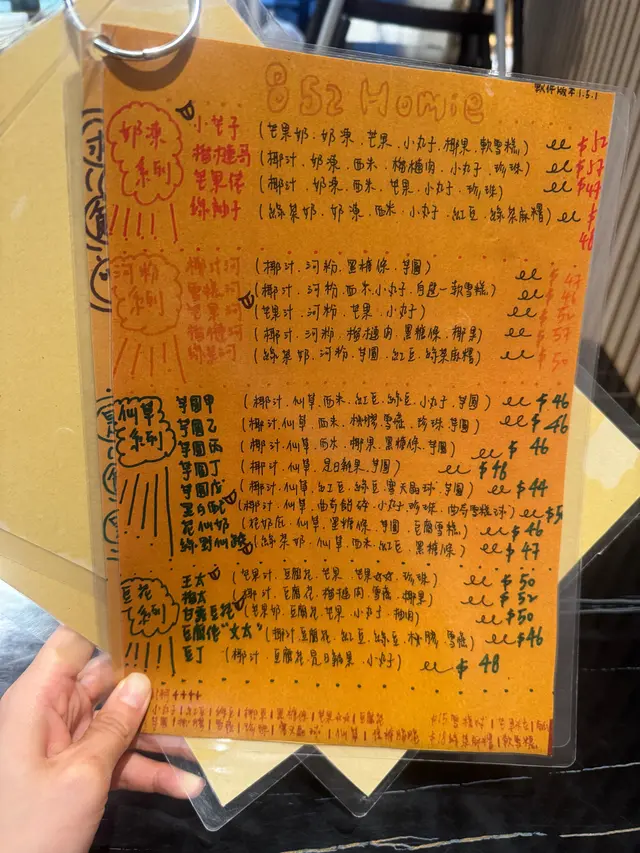 852 Homie
軟件版本1.5.1
奶凍系列
小芒子 (芒果奶.奶凍.芒果.小丸子.椰果.軟雪糕) $52
榴槤哥 (椰汁.奶凍.西米.榴槤肉.小丸子.珍珠) $57
芒果佬 (椰汁.奶凍.西米.芒果.小丸子.珍珠) $47
(綠茶奶.奶凍.西米.小丸子.紅豆.綠茶麻糬) $48
河粉系列
椰汁河 (椰汁.河粉.黑糖條.芋圓) $47
雪糕河 (椰汁.河粉.西米.小丸子.自選一軟雪糕)
芒果河 (芒果汁.河粉.芒果.小丸子)
榴槤河 (椰汁.河粉.榴槤肉.黑糖條.椰果) $57
綠茶河 (綠茶奶.河粉.芋圓.紅豆.綠茶麻糬) $50
仙草系列
芋圓甲 (椰汁.仙草.西米.紅豆.綠豆.小丸子.芋圓) $46
芋圓乙 (椰汁.仙草.西米.桃膠.雪燕.珍珠.芋圓) $46
芋圓丙 (椰汁.仙草.西米.椰果.黑糖條.芋圓) $46
芋圓丁 (椰汁.仙草.是日鮮果.芋圓) $48
芋圓戊 (椰汁.仙草.紅豆.綠豆.寒天晶球.芋圓) $44
(椰汁.仙草.曲奇甜碎.小丸子.珍珠.曲奇雪糕球)
花仙奶 (花奶底.仙草.黑糖條.芋圓.豆腐雪糕) $46
(綠茶奶.仙草.西米.紅豆.黑糖條) $47
豆花系列
王太 (芒果汁.豆腐花.芒果.珍珠) $50
榴太 (椰汁.豆腐花.榴槤肉.雪燕.椰果) $52
甘露豆花 (芒果奶.豆腐花.芒果.小丸子.柚肉) $50
豆腐佬"太太" (椰汁豆腐花.紅豆.綠豆.桃膠.雪燕) $46
豆丁 (椰汁.豆腐花.是日鮮果.小丸子) $48
小丸子|紅豆|綠豆|椰果|黑糖條
芋圓|桃膠|雪燕|珍珠|寒天晶球|仙草